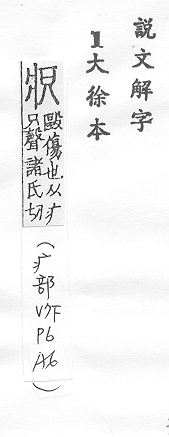 說文解字
1大徐本
疻 毆傷也从疒
只聲諸氏切
(疒部 V7下 P6 A6)